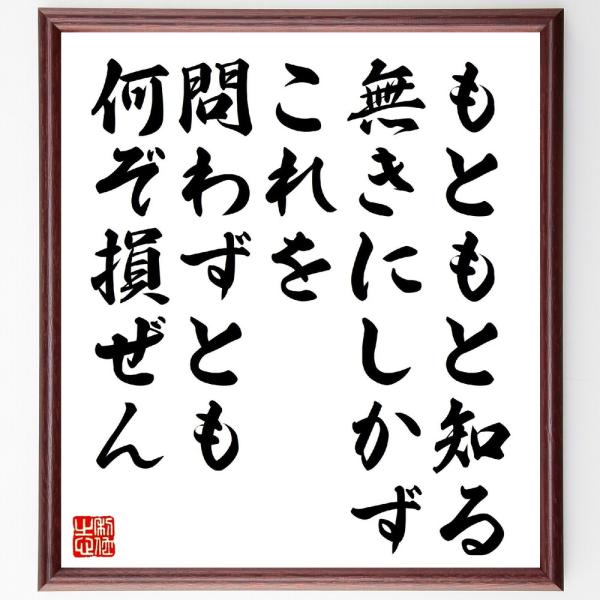 もともと知る
無きにしかず
これを
問わずとも
何ぞ損ぜん